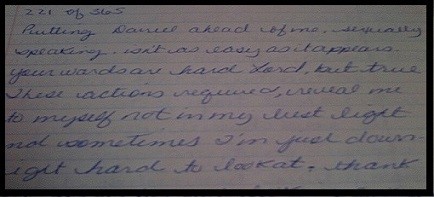 221 of 365
Putting Daniel ahead of me, sexually
speaking. isn't as easy as it appears.
your words are hard Lord, but true
These actions required, reveal me
to myself not in my best light
nd sometimes I'm just down-
ight hard to look at. thank